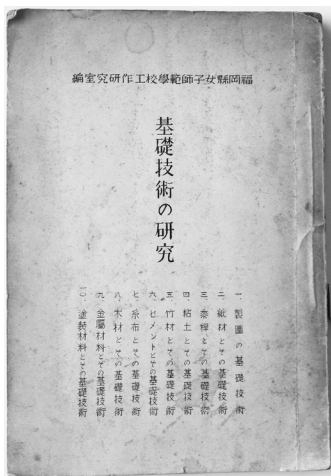 福岡縣女子師範學校工作研究室編
基礎技術の研究
一、製圖の基礎技術
二、紙材とその基礎技術
三、麥稈とその基礎技術
四、粘土とその基礎技術
五、竹材とその基礎技術
六、セメントとその基礎技術
七、糸布とその基礎技術
八、木材とその基礎技術
九、金屬材料とその基礎技術
一〇、塗装材料とその基礎技術